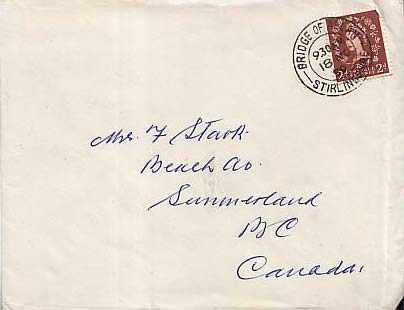 BRIDGE OF
930
18
STIRLING
2d 2d
Mrs. F Stark
Beach Av.
Summerland
BC
Canada.